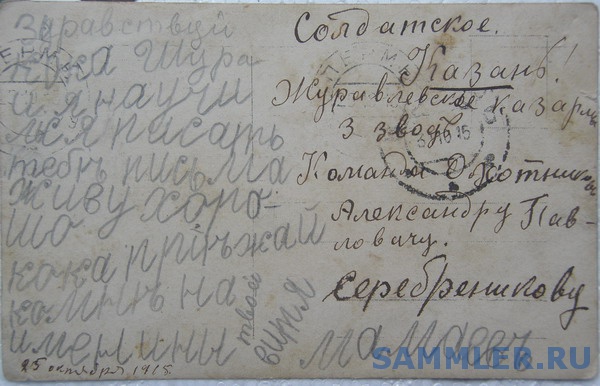 здравствуй
кока Шура
и я научи
лся писать
тебѣ письма
живу хоро-
шо
кока приѣжай
комнѣ на
именины
твой
Мамаевъ
25 октября 1915.
Солдатское.
Казань!
Журавлевское казармы
3 зводъ
Команда Охотников
Александру Пав-
ловичу.
Серебреникову
ПЕРМЬ
SAMMLER.RU